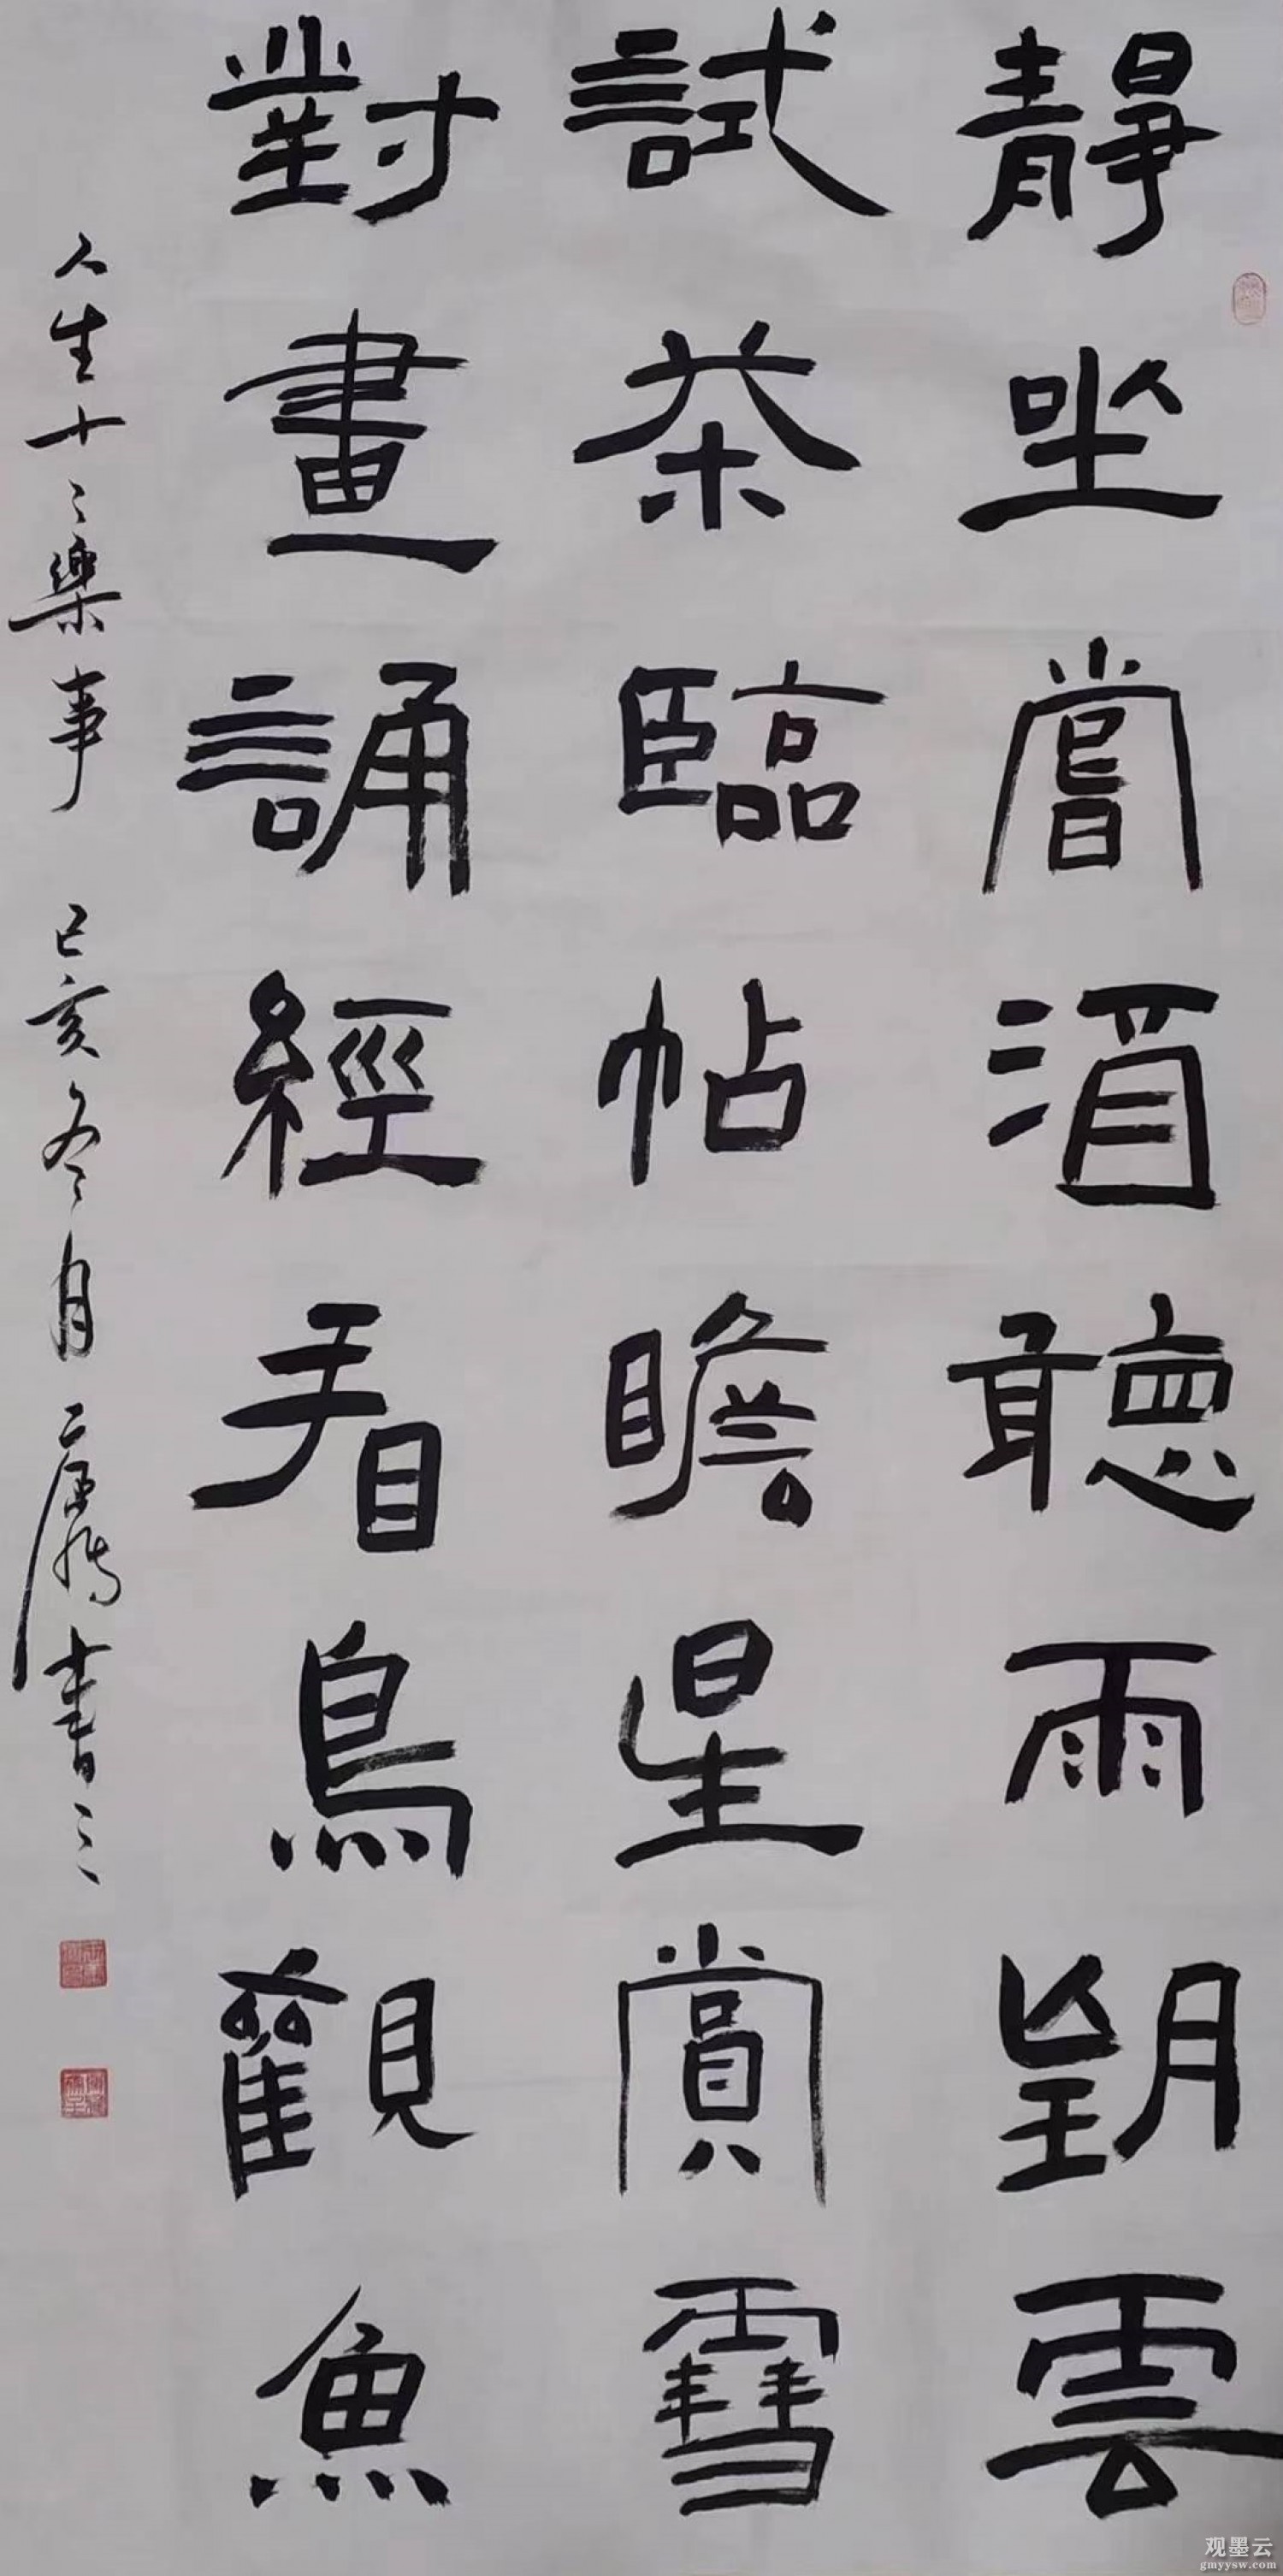 靜坐嘗酒聽雨朢雲
試茶臨帖瞻星賞雪
對畫誦經看鳥觀魚
人生十二樂事 己亥冬月 書之
观墨云
gmyysw.com